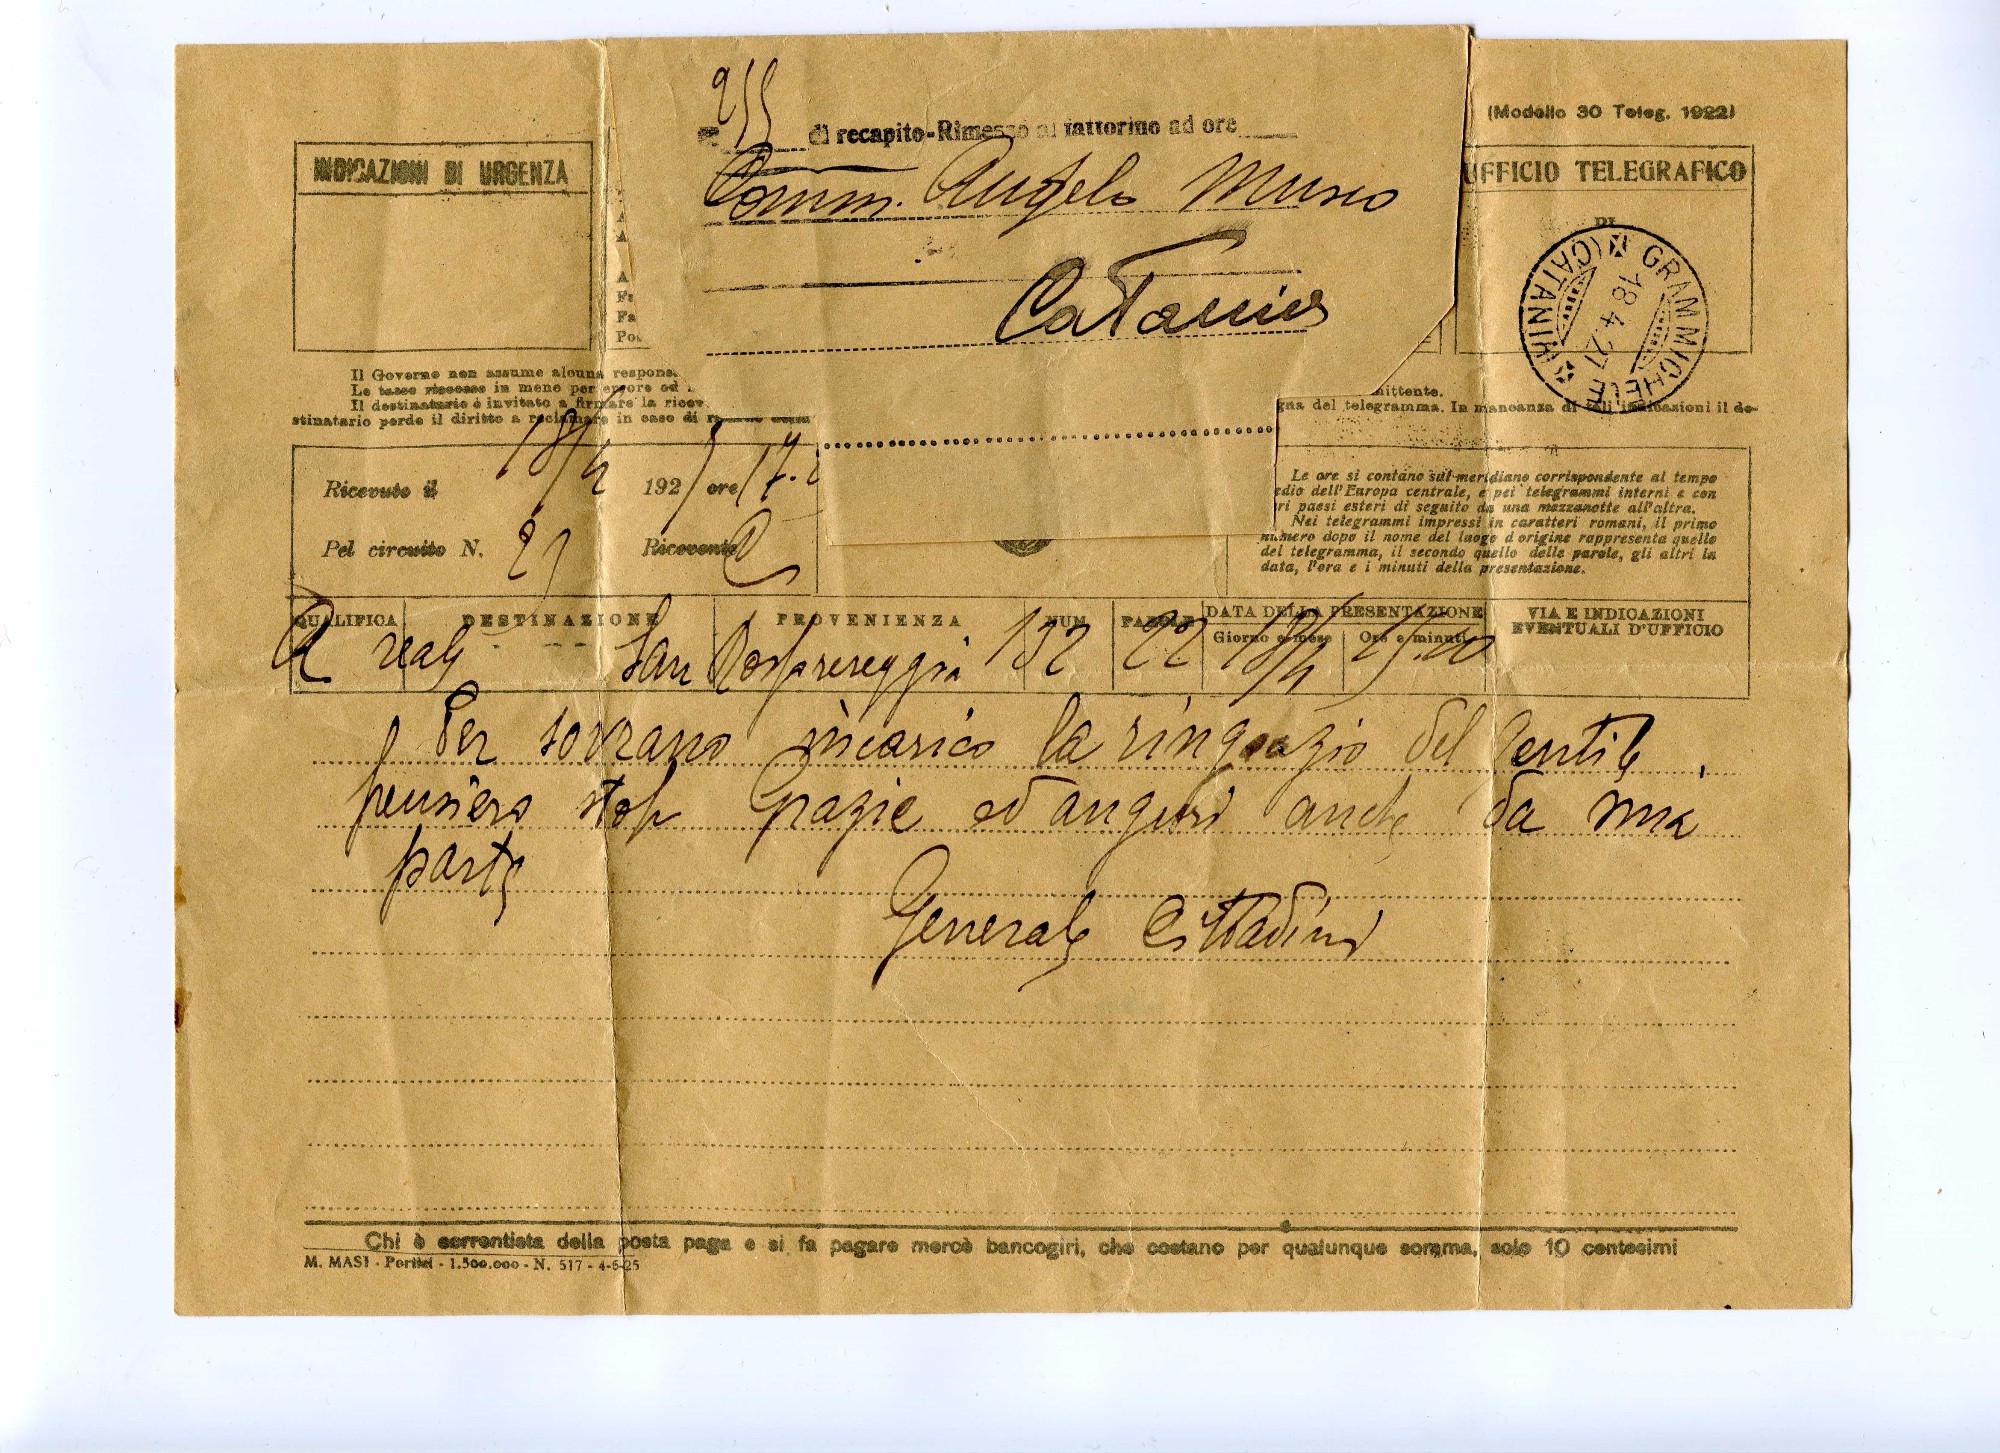 (Modello 30 Teleg. 1922)
di recapito-Rimesso al fattorino ad ore
INDICAZIONI DI URGENZA
Comm. Angelo Musco
Catania
UFFICIO TELEGRAFICO
DI
GRAMMICHELE (CATANIA)
18.4.27
Il Governo non assume alcuna respons
Le tasse riscosse in meno per errore od
Il destinatario è invitato a firmare la ricev
mittente.
gna del telegramma. In mancanza di tali indicazioni il de-
stinatario perde il diritto a reclamare in caso di
Ricevuto il 18/4 1927 ore 17.
Pel circuito N.
Ricevente
Le ore si contano sul meridiano corrispondente al tempo
edio dell'Europa centrale, e pei telegrammi interni e con
ri paesi esteri di seguito da una mezzanotte all'altra.
Nei telegrammi impressi in caratteri romani, il primo
numero dopo il nome del luogo d'origine rappresenta quello
del telegramma, il secondo quello delle parole, gli altri la
data, l'ora e i minuti della presentazione.
QUALIFICA DESTINAZIONE PROVENIENZA NUM. PAROLE DATA DELLA PRESENTAZIONE VIA E INDICAZIONI
Giorno e mese Ore e minuti EVENTUALI D'UFFICIO
reale San 132 22 18/4
Per sovrano incarico la ringrazio del gentile
pensiero stop Grazie ed auguri anche da mia
parte
Generale Cittadini
Chi è correntista della posta paga e si fa pagare mercè bancogiri, che costano per qualunque somma, solo 10 centesimi
M. MASI - Portici - 1.500.000 - N. 517 - 4-6-25